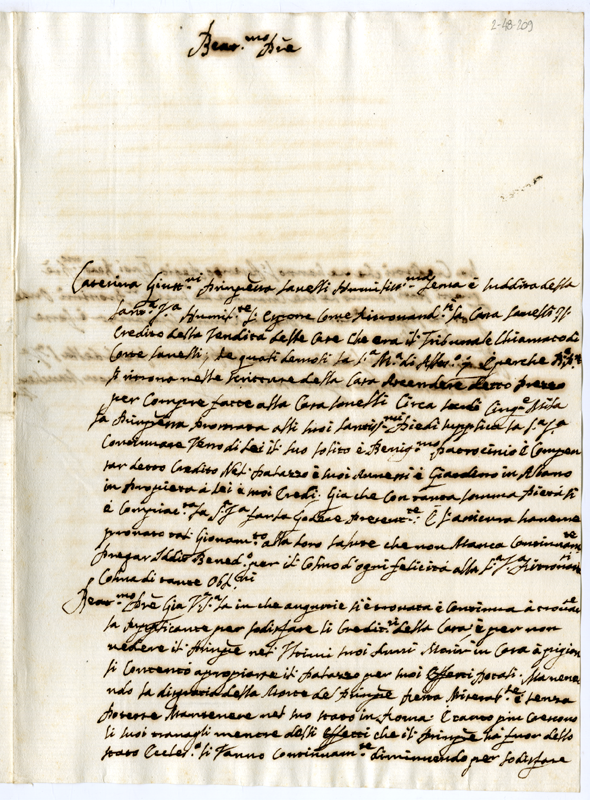 2-48-209
Bear.mo Pre
Caterina Giust.ni Prinpessa Savelli Humiliss.ma serva è suddita della
Sant.a V.a Humil.te li espone Come ritrovand. la Casa Savelli
Credito della Vendita delle Case che era il Tribunale Chiamato di
Corte Savelli, le quali demolì la perche
si ritrova nelle scritture della Casa Ascendere detto prezzo
per Compre fatte alla Casa Savelli Circa scudi Cinq.
la Prinpessa prostrata alli suoi Santiss.mi Piedi supplica la S.a V.a
Continuare Verso di Lei il suo solito è Benig.mo patrocinio è Compen
sar detto Credito Nel Palazzo è suoi Annessi è Giardino in Albano
in propietà à Lei è suoi Credi. Già che Con tanta somma Pietà si
è Compiac.ta la S.a V.a farla Godere Present.te È l'assicura haverne
provato tal Giovam.to alla loro salute che non Manca Continuam.te
Pregar Iddio Bened.o per il Colmo di ogni felicità alla S.a V.a
Colma di tante Obl.ni
Bear.mo Pre Già V. S.a sà in che angustie si è trovata è Continua à
la supplicante per sodisfare li Credit.ri della Casa è per non
vedere il Prinpe nel' Ultimi suoi Anni Morir in Casa à pigion
si Contentò apropiarse il Palazzo per suoi Effetti Dotali. Manca
ndo la disgratia della Morte del Prinpe restò Miserab.te è senza
potersse Mantenere nel suo stato in Roma. È tanto più Crescono
li suoi travagli mentre delli Effetti che il Prinpe hà fuor dello
stato Eccles.o si Vanno Continuam.te diminuendo per sodisfare